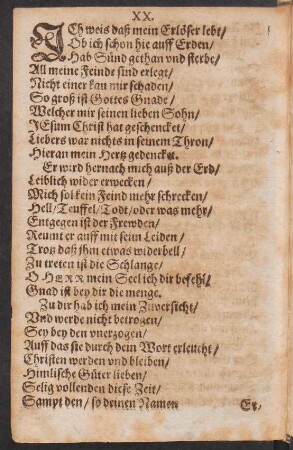 XX.
ICh weis daß mein Erlöser lebt/
Ob ich schon hie auff Erden/
Hab Sünd gethan vnd sterbe/
All meine Feinde sind erlegt/
Nicht einer kan mir schaden/
So groß ist Gottes Gnade/
Welcher mir seinen lieben Sohn/
JEsum Christ hat geschencket/
Liebers war nichts in seinem Thron/
Hieran mein Hertz gedencket.
Er wird hernach mich auß der Erd/
Leiblich wider erwecken/
Mich sol kein Feind mehr schrecken/
Hell/Teuffel/Todt/oder was mehr/
Entgegen ist der Frewden/
Reumt er auff mit sein Leiden/
Trotz daß jhm etwas widerbell/
Zu treten ist die Schlange/
O HERR mein Seel ich dir befehl/
Gnad ist bey dir die menge.
Zu dir hab ich mein Zuversicht/
Vnd werde nicht betrogen/
Sey bey den vnerzogen/
Auff das sie durch dein Wort erleucht/
Christen werden vnd bleiben/
Himlische Güter lieben/
Selig vollenden diese Zeit/
Sampt den/so deinen Namen
Er,